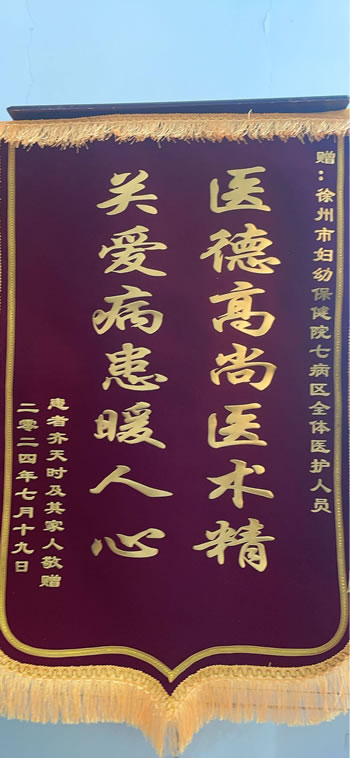 赠：徐州市妇幼保健院七病区全体医护人员
医德高尚医术精
关爱病患暖人心
患者齐天时及其家人敬赠
二零二四年七月十九日